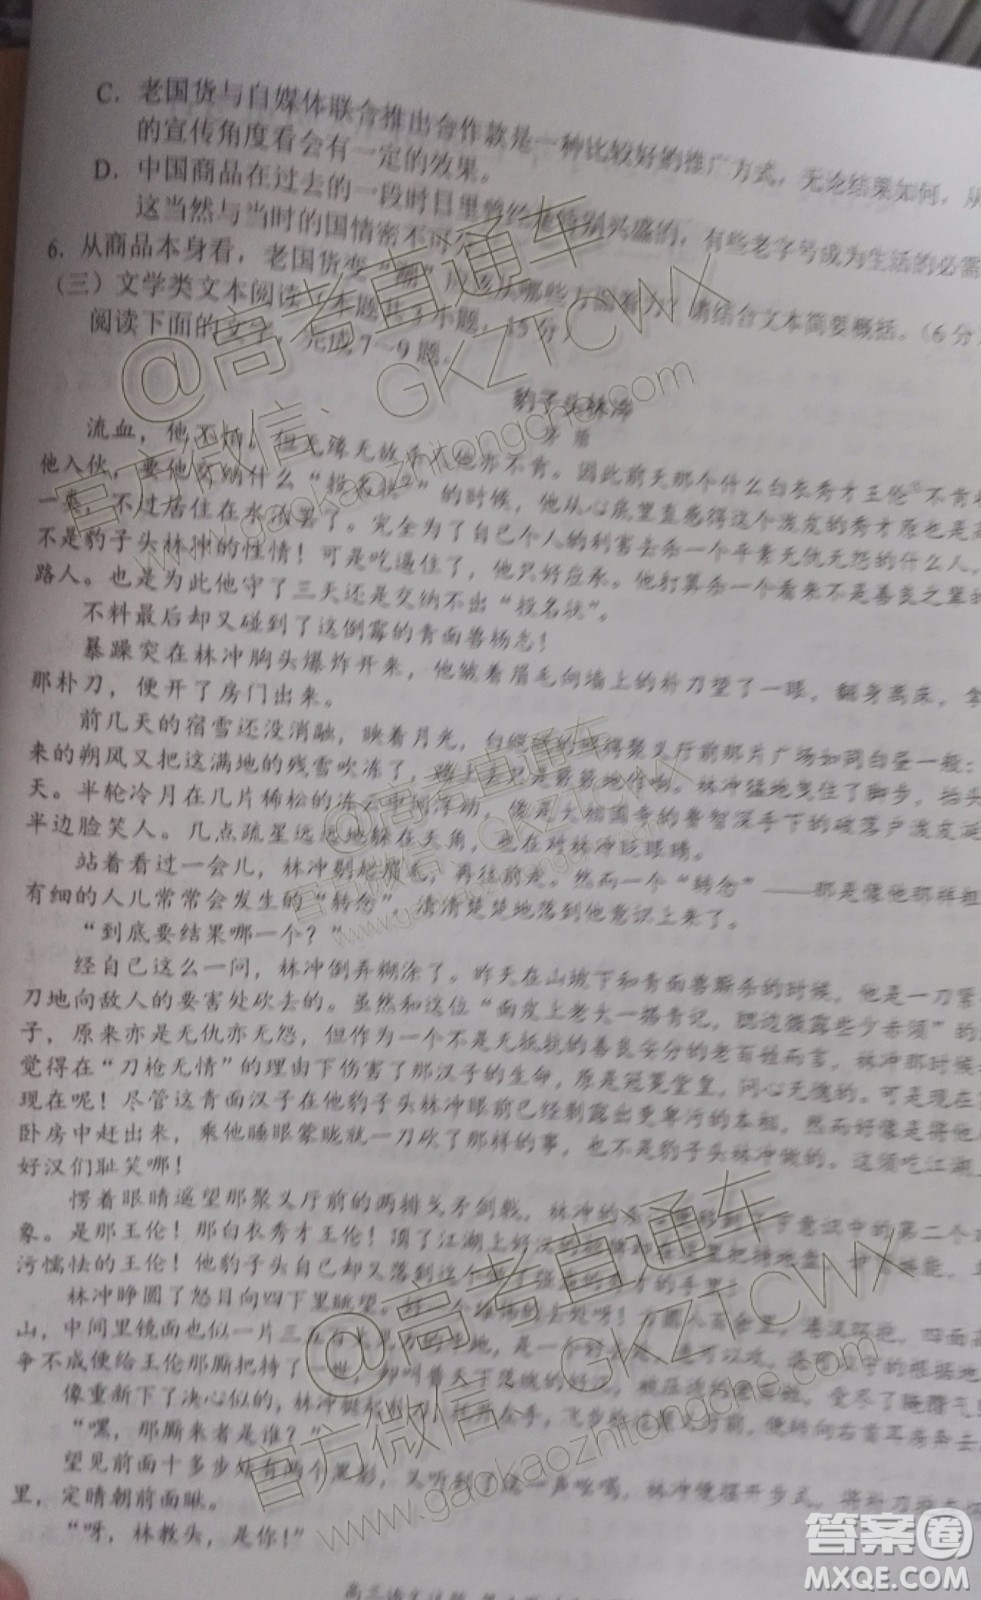 C. 老国货与自媒体联合推出合作款是一种比较好的推广方式，无论结果如何，从
的宣传角度看会有一定的效果。
D. 中国商品在过去的一段时日里曾经是特别兴盛的，有些老字号成为生活的必需
这当然与当时的国情密不可
6. 从商品本身看，老国货变“潮”应该从哪些方面着力？请结合文本简要概括。（6分）
（三）文学类文本阅读（本题共3小题，15分）
阅读下面的文字，完成7～9题。
豹子头林冲
茅盾
流血，他不怕，但无缘无故杀人他亦不肯。因此前天那个什么白衣秀才王伦①不肯
他入伙，要他交纳什么“投名状②”的时候，他从心底里直感得这个泼皮的秀才原也是
一类，不过居住在水泊罢了。完全为了自己个人的利害去杀一个平素无仇无怨的什么人，
不是豹子头林冲的性情！可是吃逼住了，他只好应承。他打算杀一个看来不是善良之辈的
路人。也是为此他守了三天还是交纳不出“投名状”。
不料最后却又碰到了这倒霉的青面兽杨志！
暴躁突在林冲胸头爆炸开来，他皱着眉毛向墙上的朴刀望了一眼，翻身离床，拿
那朴刀，便开了房门出来。
前几天的宿雪还没消融，映着月光，白皑皑的照得聚义厅前那片广场如同白昼一般；
来的朔风又把这满地的残雪吹冻了，踏上去只是簌簌地作响。林冲猛地曳住了脚步，抬头
天。半轮冷月在几片稀松的冻云中间浮动，像是大相国寺的鲁智深手下的破落户泼皮
半边脸笑人。几点疏星远远地躲在天角，也在对林冲眨眼睛。
站着看过一会儿，林冲剔起眉毛，再往前走。然而一个“转念”——那是像他那样粗
有细的人儿常常会发生的“转念”，清清楚楚地落到他意识上来了。
“到底要结果哪一个？”
经自己这么一问，林冲倒弄糊涂了。昨天在山坡下和青面兽厮杀的时候，他是一刀紧
刀地向敌人的要害处砍去的。虽然和这位“面皮上老大一搭青记，腮边微露些少赤须”的
子，原来亦是无仇亦无怨，但作为一个不是无抵抗的善良安分的老百姓而言，林冲那时候
觉得在“刀枪无情”的理由下伤害了那汉子的生命，原是冠冕堂皇，问心无愧的。可是现在
现在呢！尽管这青面汉子在他豹子头林冲眼前已经剥露出更卑污的本相，然而好像是将他
卧房中赶出来，乘他睡眼蒙眬就一刀砍了那样的事，也不是豹子头林冲做的。这须吃江湖上
好汉们耻笑哪！
愣着眼睛遥望那聚义厅前的两排戈矛剑戟，林冲的杀心移到了下意识中的第二个
象。是那王伦！那白衣秀才王伦！顶了江湖上好汉的招牌却在这里把持地盘，妒贤嫉能，
污懦怯的王伦！他豹子头自己却又落到这个比强盗的秀才的手里！
林冲睁圆了怒目向四下里眺望。好一个雄伟的去处呀！方圆八百余里，港汊环抱，四面
山，中间里镜面也似一片三五百丈见方的平地，是一个
争不成便给王伦那厮把持了一世，却叫普天下落魄的好汉，被压迫的老百姓，受尽了腌臜气！
像重新下了决心似的，林冲挺
“嘿，那厮来者是谁？”
望见前面十多步处有两个黑影，又听到了这一声吆喝，林冲便摆开步式，将朴刀
里，定睛朝前面瞅。
“呀，林教头，是你！”
@高考直通车
官方微信：GKZTCWX
www.gaokaozhitongche.com
@高考直通车
官方微信：GKZTCWX
www.gaokaozhitongche.com
@高考直通车
官方微信：GKZTCWX
www.gaokaozhitongche.com
答案圈
MXQE.COM